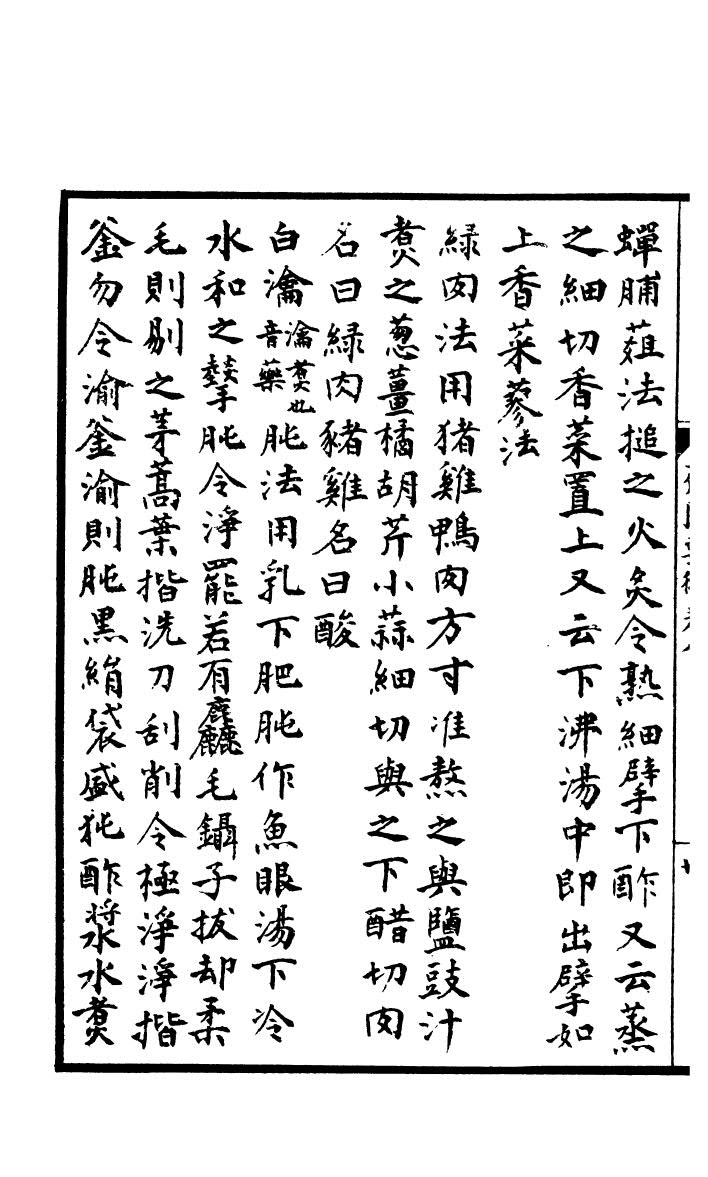 蟬脯菹法搥之火炙令熟細擘下酢又云蒸
之細切香菜置上又云下沸湯中即出擘如
上香菜蓼法
綠肉法用猪雞鴨肉方寸准熬之與鹽豉汁
煑之葱薑橘胡芹小蒜細切與之下醋切肉
名曰綠肉豬雞名曰酸
白瀹瀹煑也音藥肫法用乳下肥肫作魚眼湯下冷
水和之㨍肫令淨罷若有麤毛鑷子拔却柔
毛則剔之茅蒿葉揩洗刀刮削令極淨淨揩
釜勿令渝釜渝則肫黒絹袋盛㹠酢漿水煑